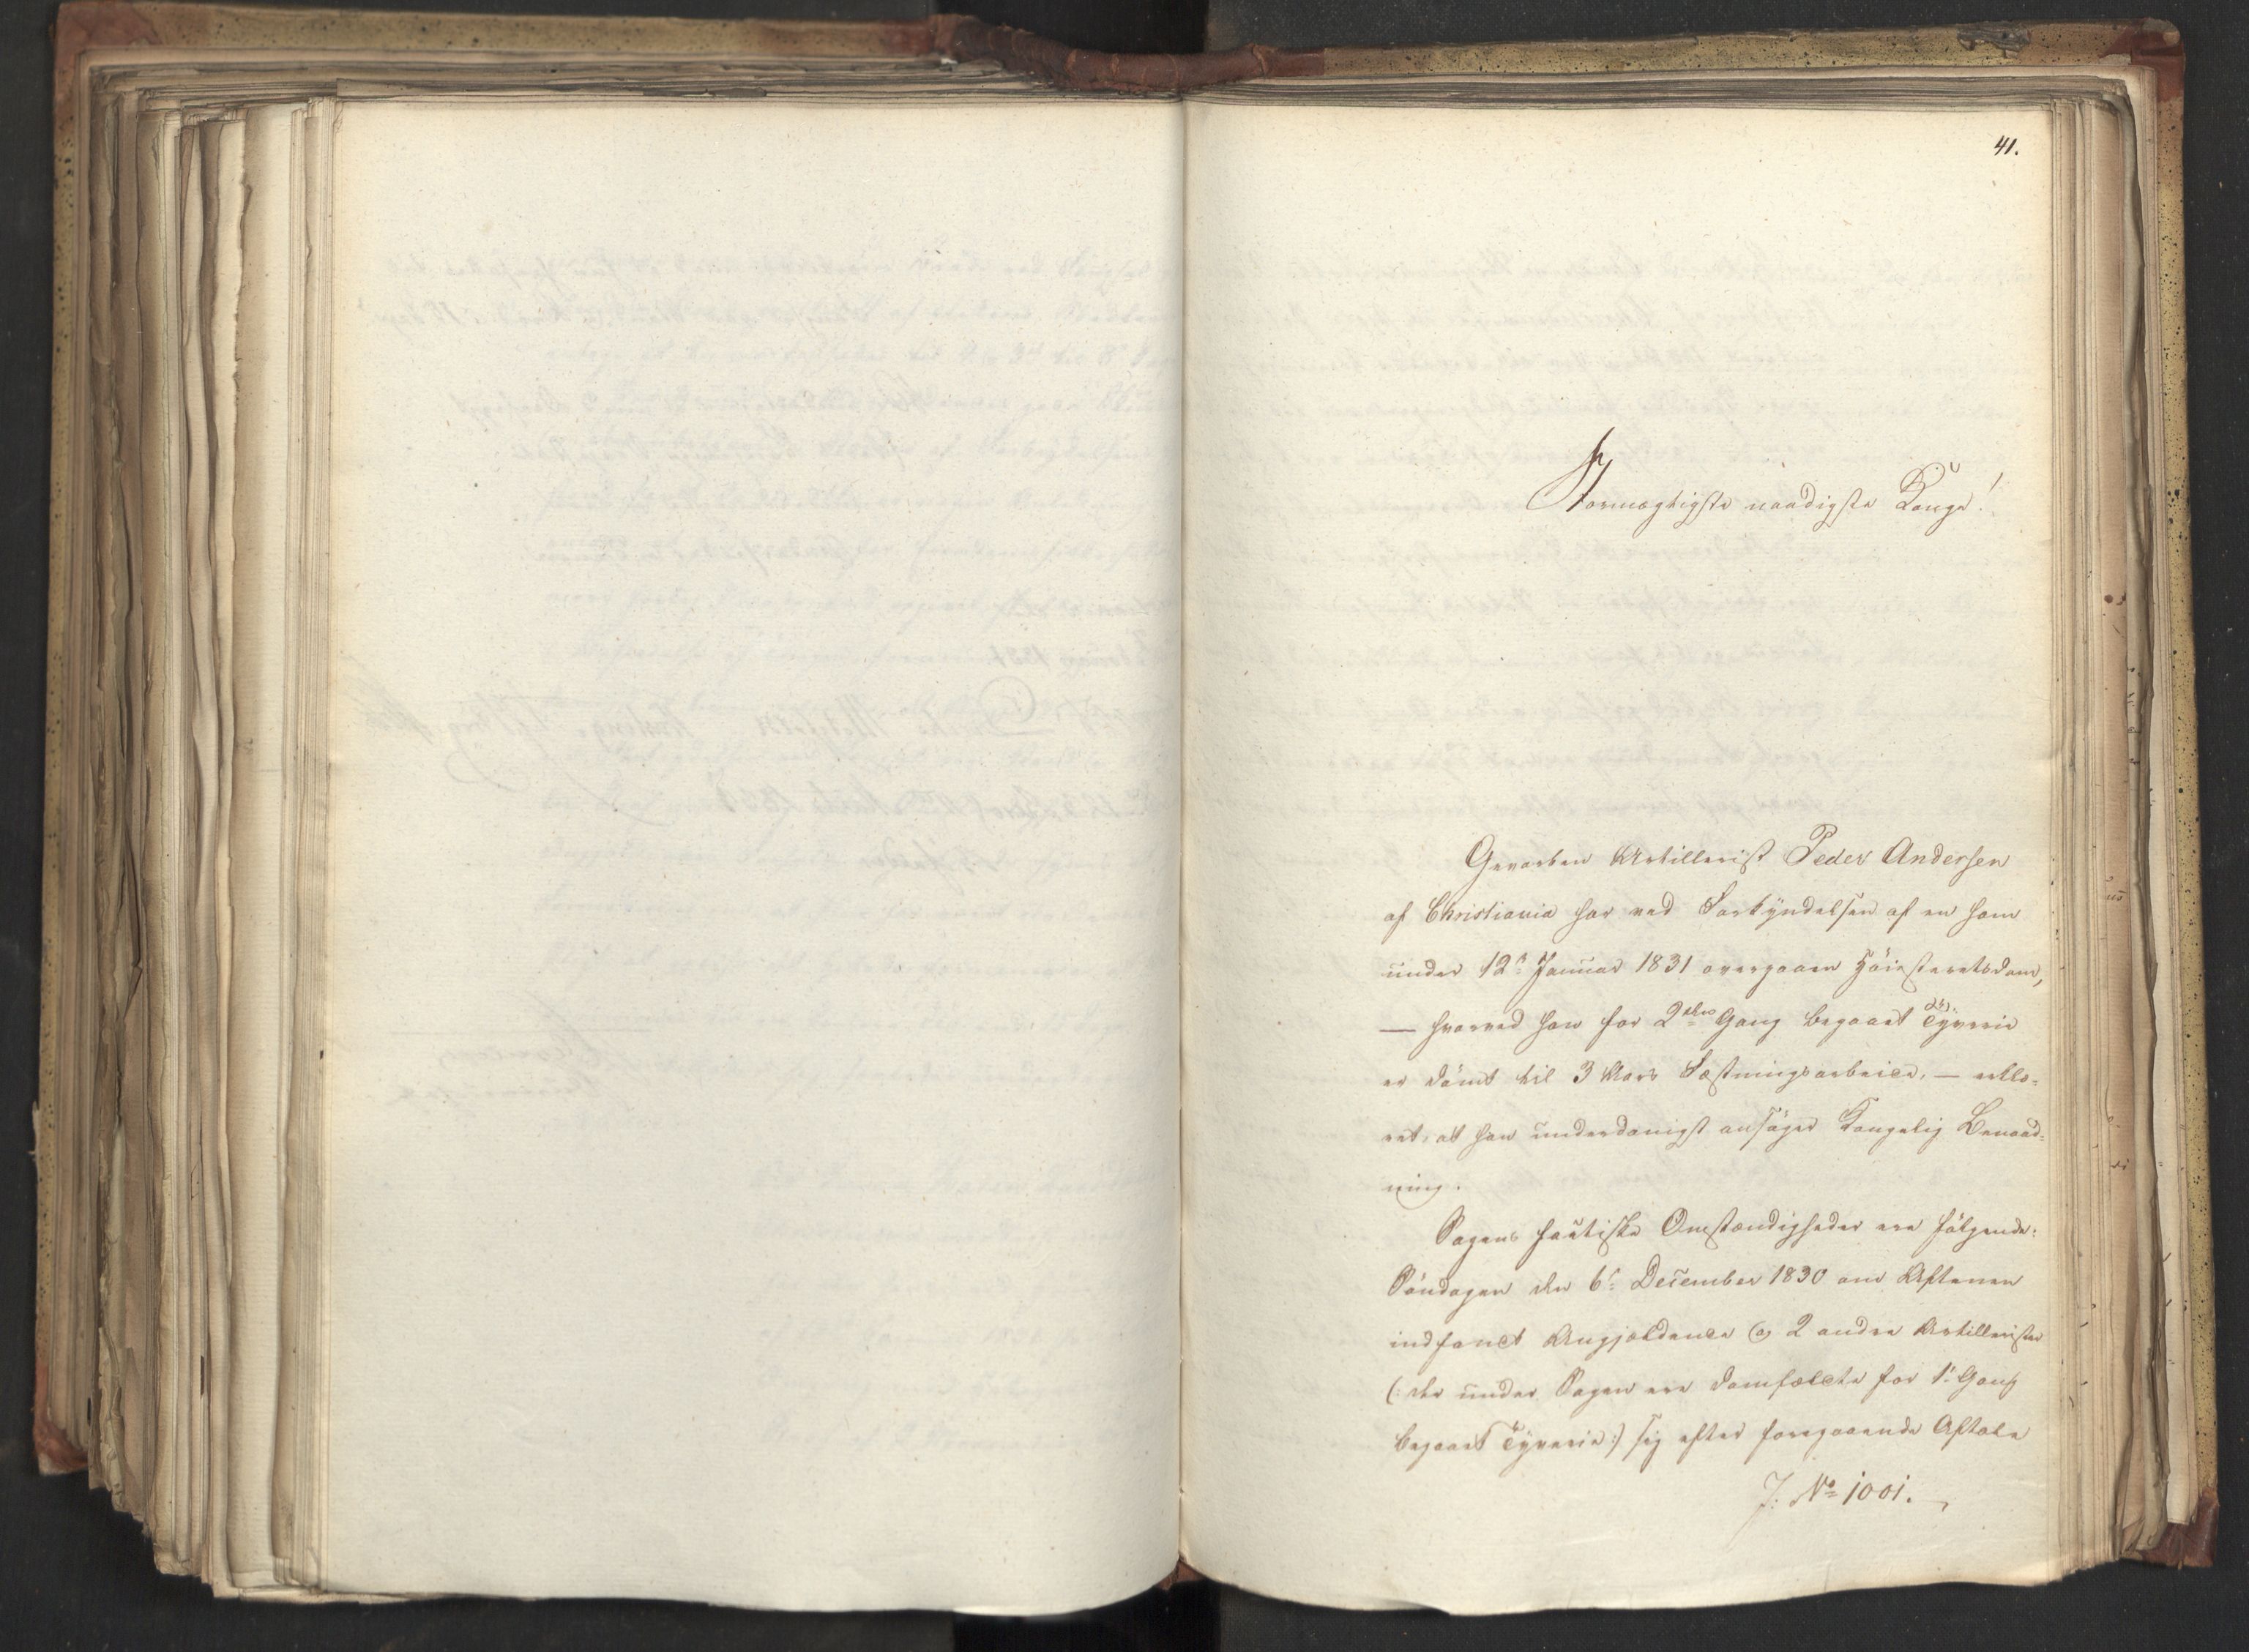 41.
Stormægtigste naadigste Konge!
Gevorben Artillerist Peder Andersen
af Christiania har ved Forkyndelsen af en ham
under 12te Januar 1831 overgaaen Höiesteretsdom,
— hvorved han for 2den Gang begaaet Tyverie
er dömt til 3 Aars Fæstningsarbeide, — erklæ-
ret, at han underdanigst ansöger Kongelig Benaad-
ning.
Sagens factiske Omstændigheder ere fölgende:
Söndagen den 6te December 1830 om Aftenen
indfandt Angjeldende og 2 andre Artillerister
(: der under Sagen ere domfældte for 1ste Gang
begaaet Tyverie:) sig efter foregaaende Aftale
J: No 1001.